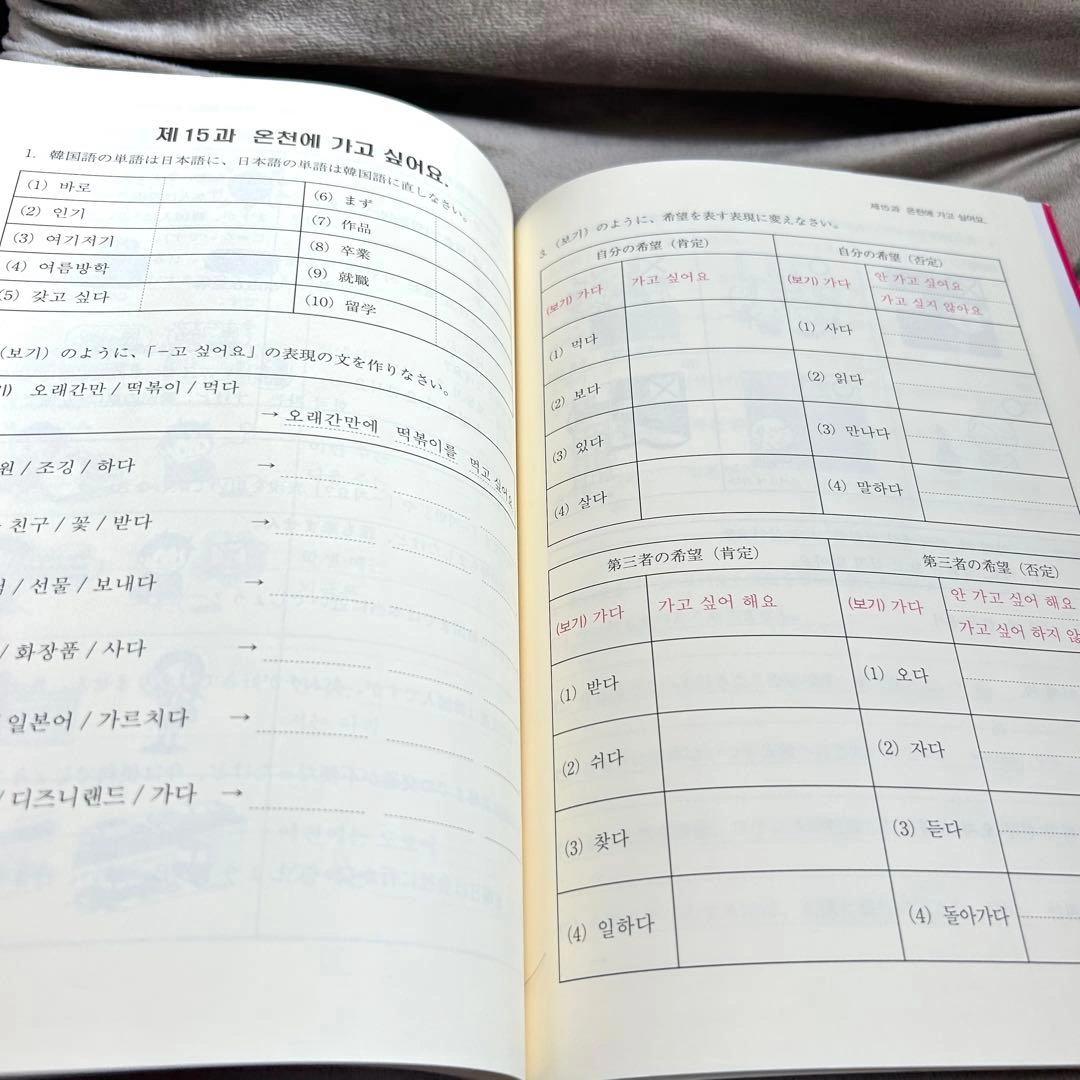 제15과 온천에 가고 싶어요.
1. 韓国語の単語は日本語に、日本語の単語は韓国語に直しなさい。
(1) 바로
(6) まず
(2) 인기
(7) 作品
(3) 여기저기
(8) 卒業
(4) 여름방학
(9) 就職
(5) 갖고 싶다
(10) 留学
(보기) のように、「-고 싶어요」の表現の文を作りなさい。
오래간만 / 떡볶이 / 먹다
→ 오래간만에 떡볶이를 먹고 싶어요
원 / 조깅 / 하다 →
친구 / 꽃 / 받다 →
/ 선물 / 보내다 →
/ 화장품 / 사다 →
/ 일본어 / 가르치다 →
/ 디즈니랜드 / 가다 →
제15과 온천에 가고 싶어요.
3. (보기) のように、希望を表す表現に変えなさい。
自分の希望（肯定）
自分の希望（否定）
(보기) 가다
가고 싶어요
(보기) 가다
안 가고 싶어요
가고 싶지 않아요
(1) 먹다
(1) 사다
(2) 보다
(2) 읽다
(3) 있다
(3) 만나다
(4) 살다
(4) 말하다
第三者の希望（肯定）
第三者の希望（否定）
(보기) 가다
가고 싶어 해요
(보기) 가다
안 가고 싶어 해요
가고 싶어 하지 않
(1) 받다
(1) 오다
(2) 쉬다
(2) 자다
(3) 찾다
(3) 듣다
(4) 일하다
(4) 돌아가다